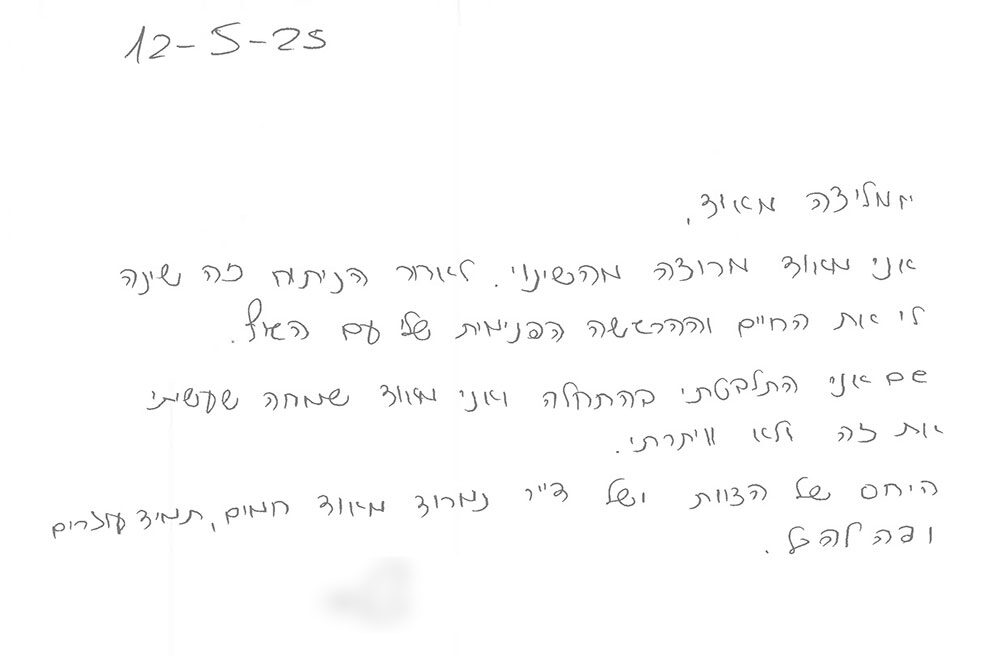 12-5-25
ממליצה מאוד,
אני מאוד מרוצה מהשינוי. לאחר הניתוח זה שינה
לי את החיים וההרגשה הפנימית שלי עם הגוף.
גם אני התלבטתי בהתחלה ואני מאוד שמחה שעשיתי
את זה ולא וויתרתי.
היחס של הצוות ושל ד״ר נמרוד מאוד חמים, תמיד עוזרים
ופה להכל.